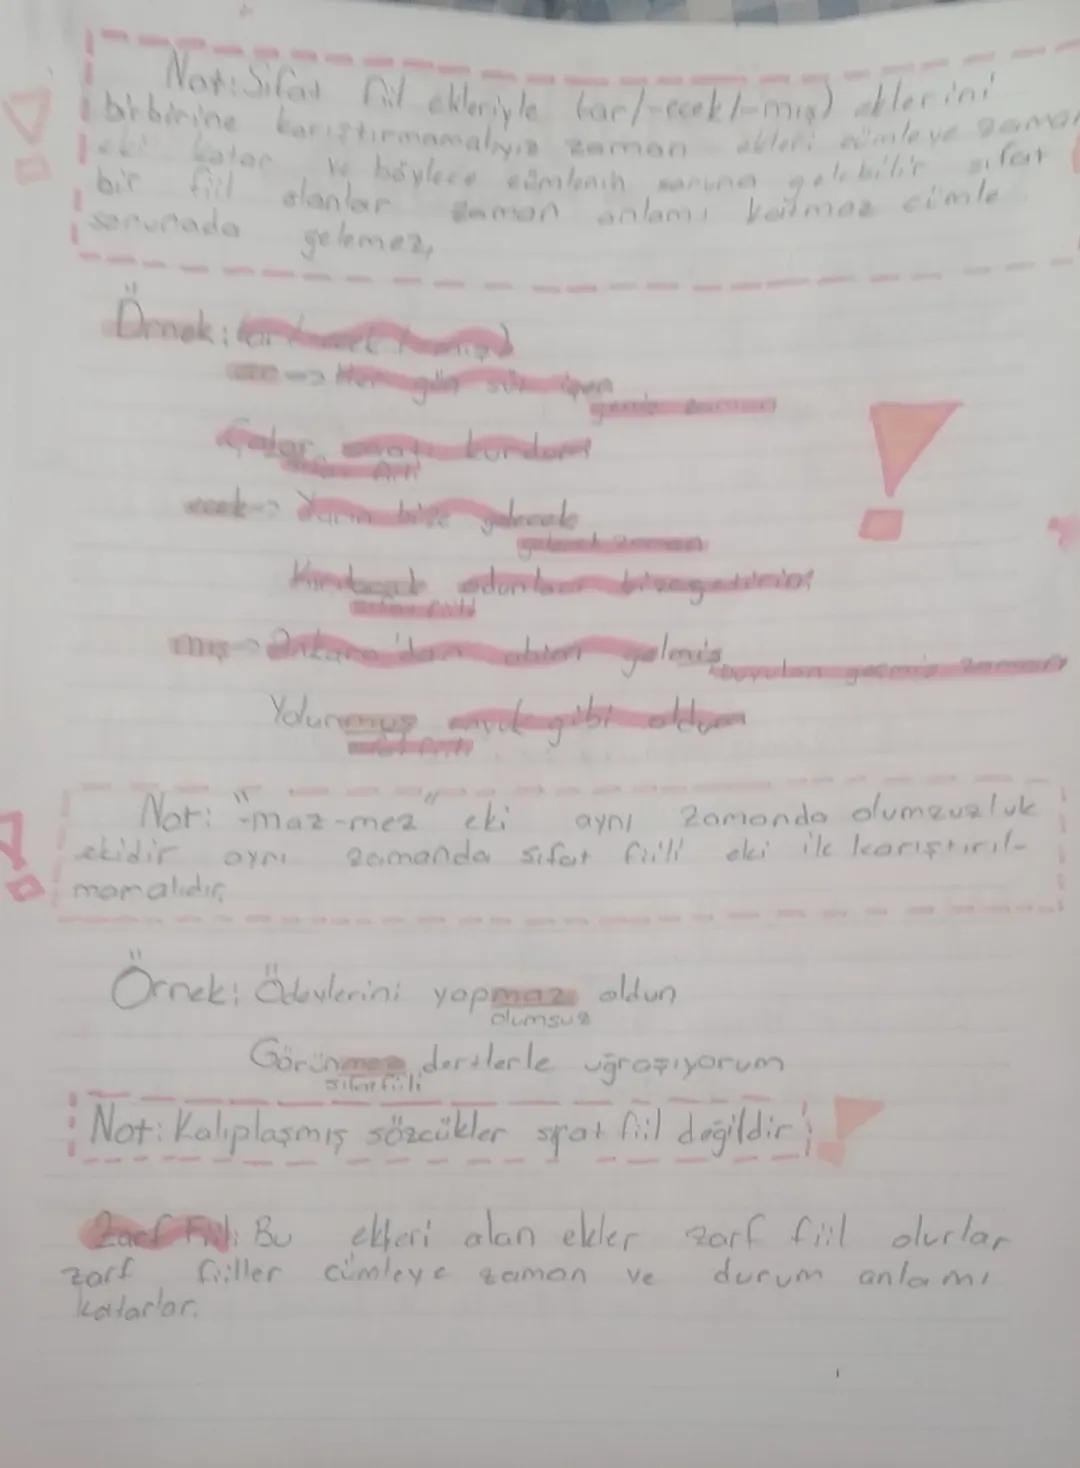 Not: Sıfat fiil ekleriyle (ar/-ecek/-mış) eklerini
birbirine karıştırmamalıyız zaman ekleri cümleye zaman
eki katar ve böylece cümlenin sonuna gelebilir sıfat
bir fiil olanlar zaman anlamı katmaz cümle
sonunada gelemez,
Örnek: (ar / ecek / mış)
=> Her gün süt içer
geniş zaman
Çalar saati kurdum
ecek-> Yarın bize gelecek
gelecek zaman
Kırılacak odunları bize getirin!
sıfat fiil
mış-> Ankara'dan abim gelmiş
duyulan geçmiş zaman
Yolunmuş gibi oldum
sıfat fiil
Not: "-maz-mez" eki aynı zamanda olumzuzluk
ekidir aynı zamanda sıfat fiili eki ile karıştırıl-
mamalıdır,
Örnek: Ödevlerini yapmaz oldun
olumsuz
Görünmez dertlerle uğraşıyorum
sıfat fiili
Not: Kalıplaşmış sözcükler sıfat fiil değildir
Zarf Fiil: Bu ekleri alan ekler zarf fiil olurlar
zarf fiiller cümleye zaman ve durum anlamı
katarlar.